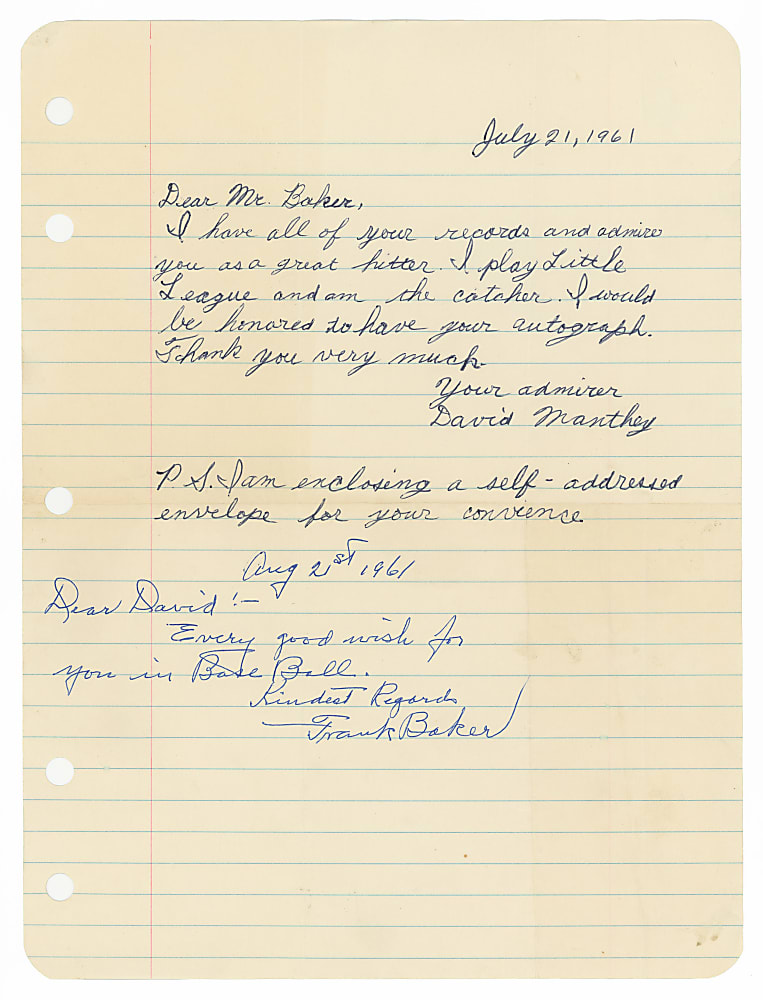 July 21, 1961
Dear Mr. Baker,
I have all of your records and admire
you as a great hitter. I play Little
League and am the catcher. I would
be honored to have your autograph.
Thank you very much.
Your admirer
David Manthey
P.S. I am enclosing a self-addressed
envelope for your convience.
Aug 21st 1961
Dear David!-
Every good wish for
you in Base Ball.
Kindest Regards
Frank Baker